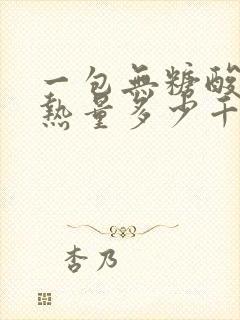 一包無糖酸
熱量多少千
杏乃